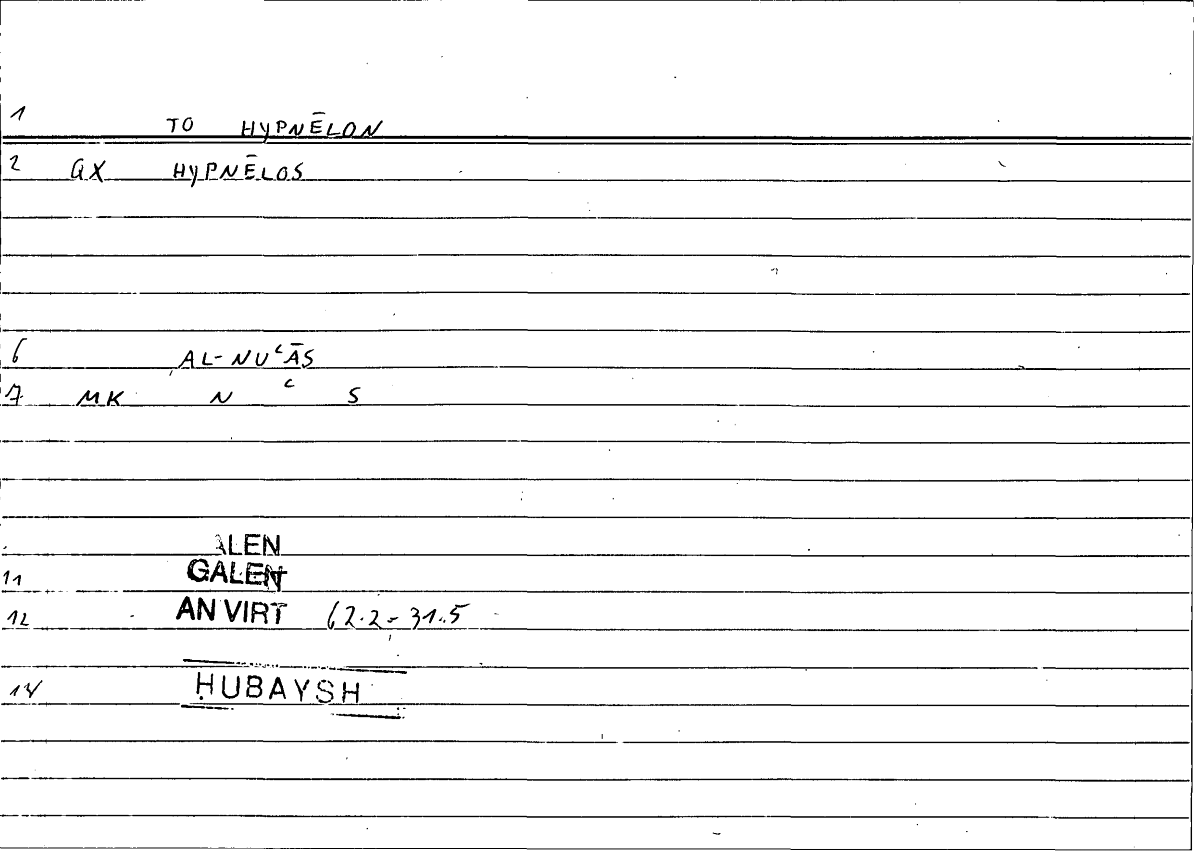 1 TO HYPNĒLON
2 GX HYPNĒLOS
6 AL-NUʿĀS
7 MK N ʿ S
ALEN
11 GALEN
12 AN VIRT 62.2 = 31.5
14 ḤUBAYSH